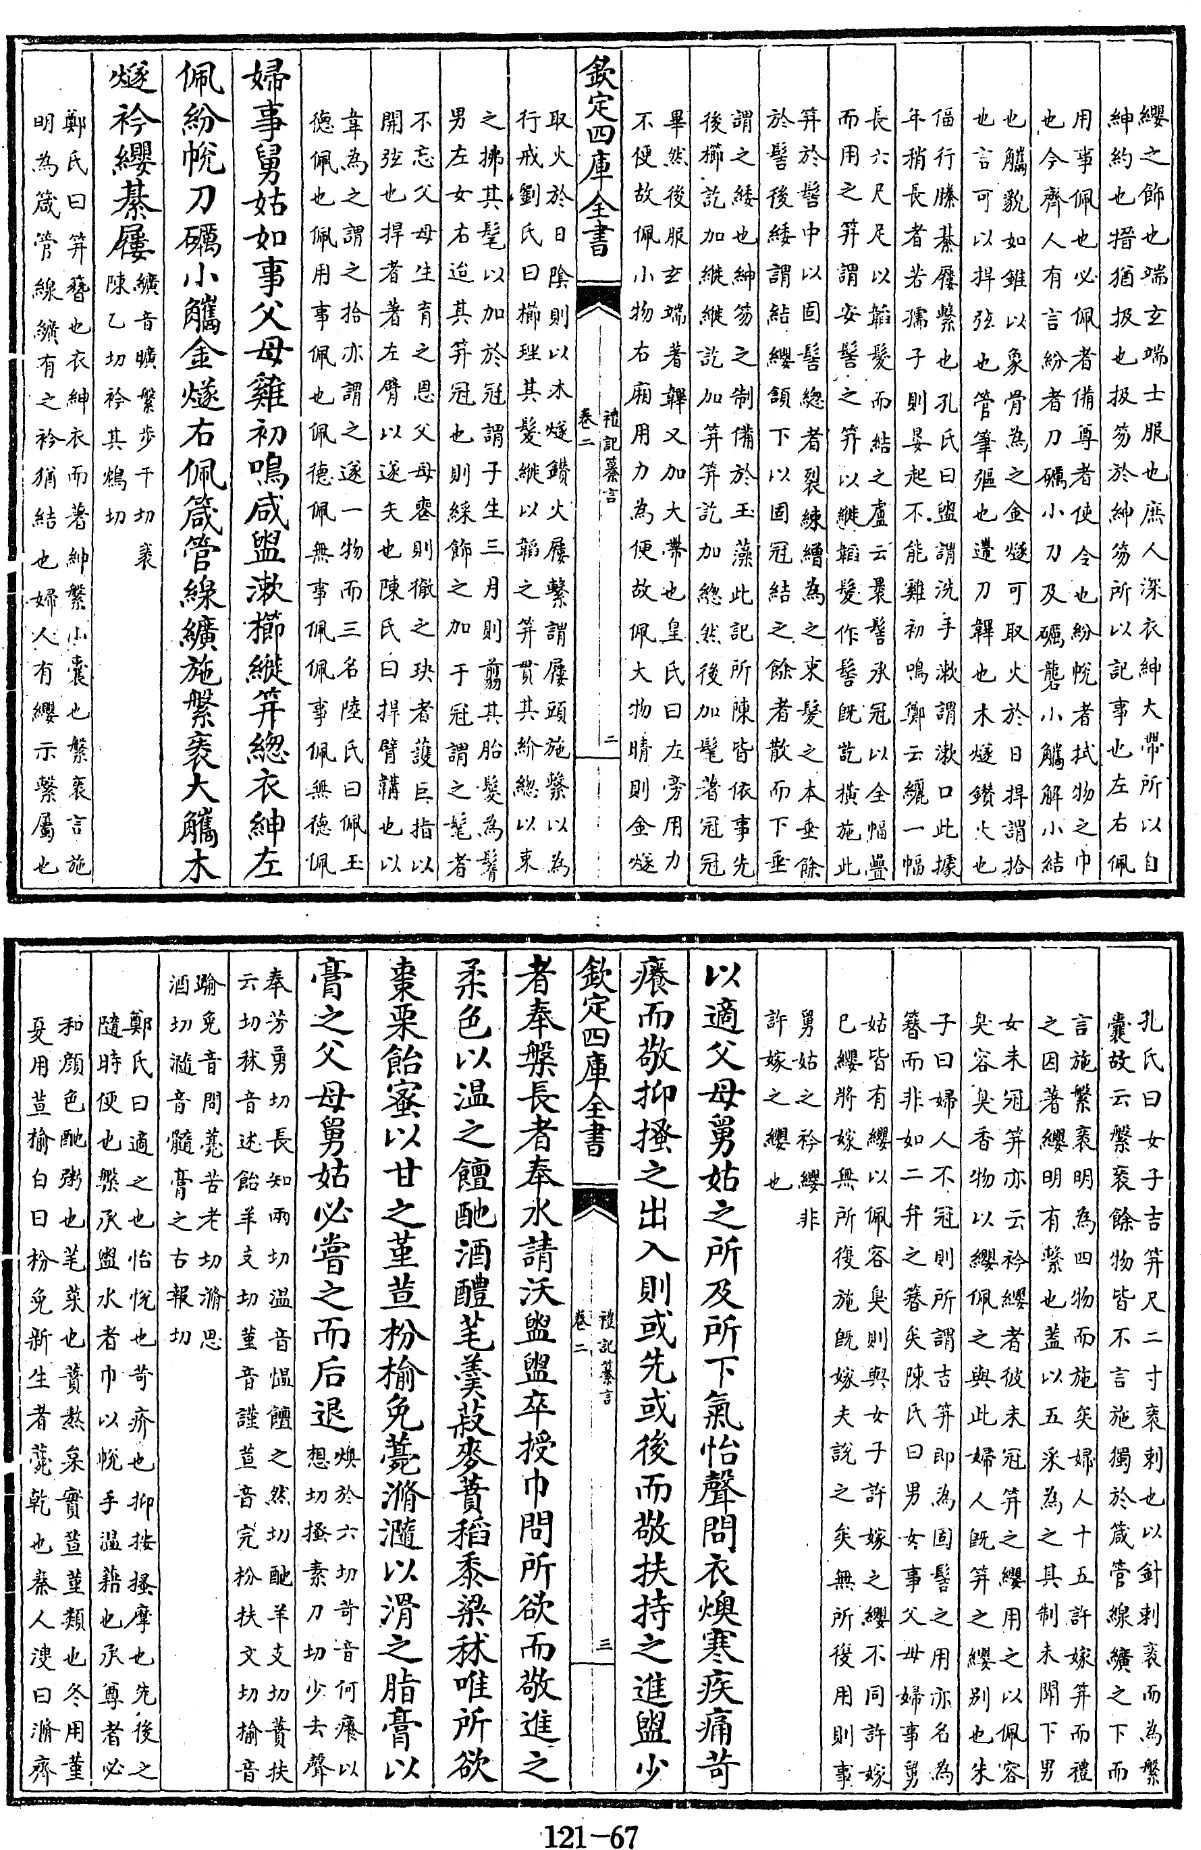 纓之飾也端玄端士服也庶人深衣紳大帶所以自
紳約也搢猶扱也扱笏於紳笏所以記事也左右佩
用事佩也必佩者備尊者使令也紛帨者拭物之巾
也今齊人有言紛者刀礪小刀及礪礱小觿解小結
也觿貌如錐以象骨為之金燧可取火於日捍謂拾
也言可以捍弦也管筆彄也遰刀鞞也木燧鑽火也
偪行縢綦屨繫也孔氏曰盥謂洗手漱謂漱口此據
年稍長者若孺子則晏起不能雞初鳴鄭云纚一幅
長六尺尺以韜髮而結之盧云裹髻承冠以全幅疊
而用之笄謂安髻之笄以縰韜髮作髻既訖橫施此
笄於髻中以固髻總者裂練繒為之束髮之本垂餘
於髻後緌謂結纓頷下以固冠結之餘者散而下垂
謂之緌也紳笏之制備於玉藻此記所陳皆依事先
後櫛訖加縰縰訖加笄笄訖加總然後加髦著冠冠
畢然後服玄端著韠又加大帶也皇氏曰左旁用力
不便故佩小物右廂用力為便故佩大物晴則金燧
欽定四庫全書
禮記纂言
卷二
二
取火於日陰則以木燧鑽火屨繫謂屨頭施繫以為
行戒劉氏曰櫛理其髮縰以韜之笄貫其紒總以束
之拂其髦以加於冠謂子生三月則翦其胎髮為鬌
男左女右迨其笄冠也則綵飾之加于冠謂之髦者
不忘父母生育之恩父母喪則徹之玦者護巨指以
開弦也捍者著左臂以遂矢也陳氏曰捍臂鞲也以
韋為之謂之拾亦謂之遂一物而三名陸氏曰佩玉
德佩也佩用事佩也佩德佩無事佩佩事佩無德佩
婦事舅姑如事父母雞初鳴咸盥漱櫛縰笄總衣紳左
佩紛帨刀礪小觿金燧右佩箴管線纊施縏袠大觿木
燧衿纓綦屨
纊音曠縏步干切袠
陳乙切衿其鴆切
鄭氏曰笄簪也衣紳衣而著紳縏小囊也縏袠言施
明為箴管線纊有之衿猶結也婦人有纓示繫屬也
孔氏曰女子吉笄尺二寸袠刺也以針刺袠而為縏
囊故云縏袠餘物皆不言施獨於箴管線纊之下而
言施縏袠明為四物而施矣婦人十五許嫁笄而禮
之因著纓明有繫也蓋以五采為之其制未聞下男
女未冠笄亦云衿纓者彼未冠笄之纓用之以佩容
臭容臭香物以纓佩之與此婦人既笄之纓別也朱
子曰婦人不冠則所謂吉笄即為固髻之用亦名為
簪而非如二弁之簪矣陳氏曰男女事父母婦事舅
姑皆有纓以佩容臭則與女子許嫁之纓不同許嫁
已纓將嫁無所復施既嫁夫說之矣無所復用則事
舅姑之衿纓非
許嫁之纓也
以適父母舅姑之所及所下氣怡聲問衣燠寒疾痛苛
癢而敬抑搔之出入則或先或後而敬扶持之進盥少
欽定四庫全書
禮記纂言
卷二
三
者奉槃長者奉水請沃盥盥卒授巾問所欲而敬進之
柔色以温之饘酏酒醴芼羹菽麥蕡稻黍粱秫唯所欲
棗栗飴蜜以甘之堇荁枌榆免薧滫瀡以滑之脂膏以
膏之父母舅姑必嘗之而后退
燠於六切苛音何癢以
想切搔素刀切少去聲
奉芳勇切長知兩切温音愠饘之然切酏羊支切蕡扶
云切秫音述飴羊支切堇音謹荁音完枌扶文切榆音
踰免音問薧苦老切滫思
酒切瀡音髓膏之古報切
鄭氏曰適之也怡悅也苛疥也抑按搔摩也先後之
隨時便也槃承盥水者巾以帨手温藉也承尊者必
和顏色酏粥也芼菜也蕡熬枲實荁堇類也冬用堇
夏用荁榆白曰枌免新生者薧乾也秦人溲曰滫齊
121-67